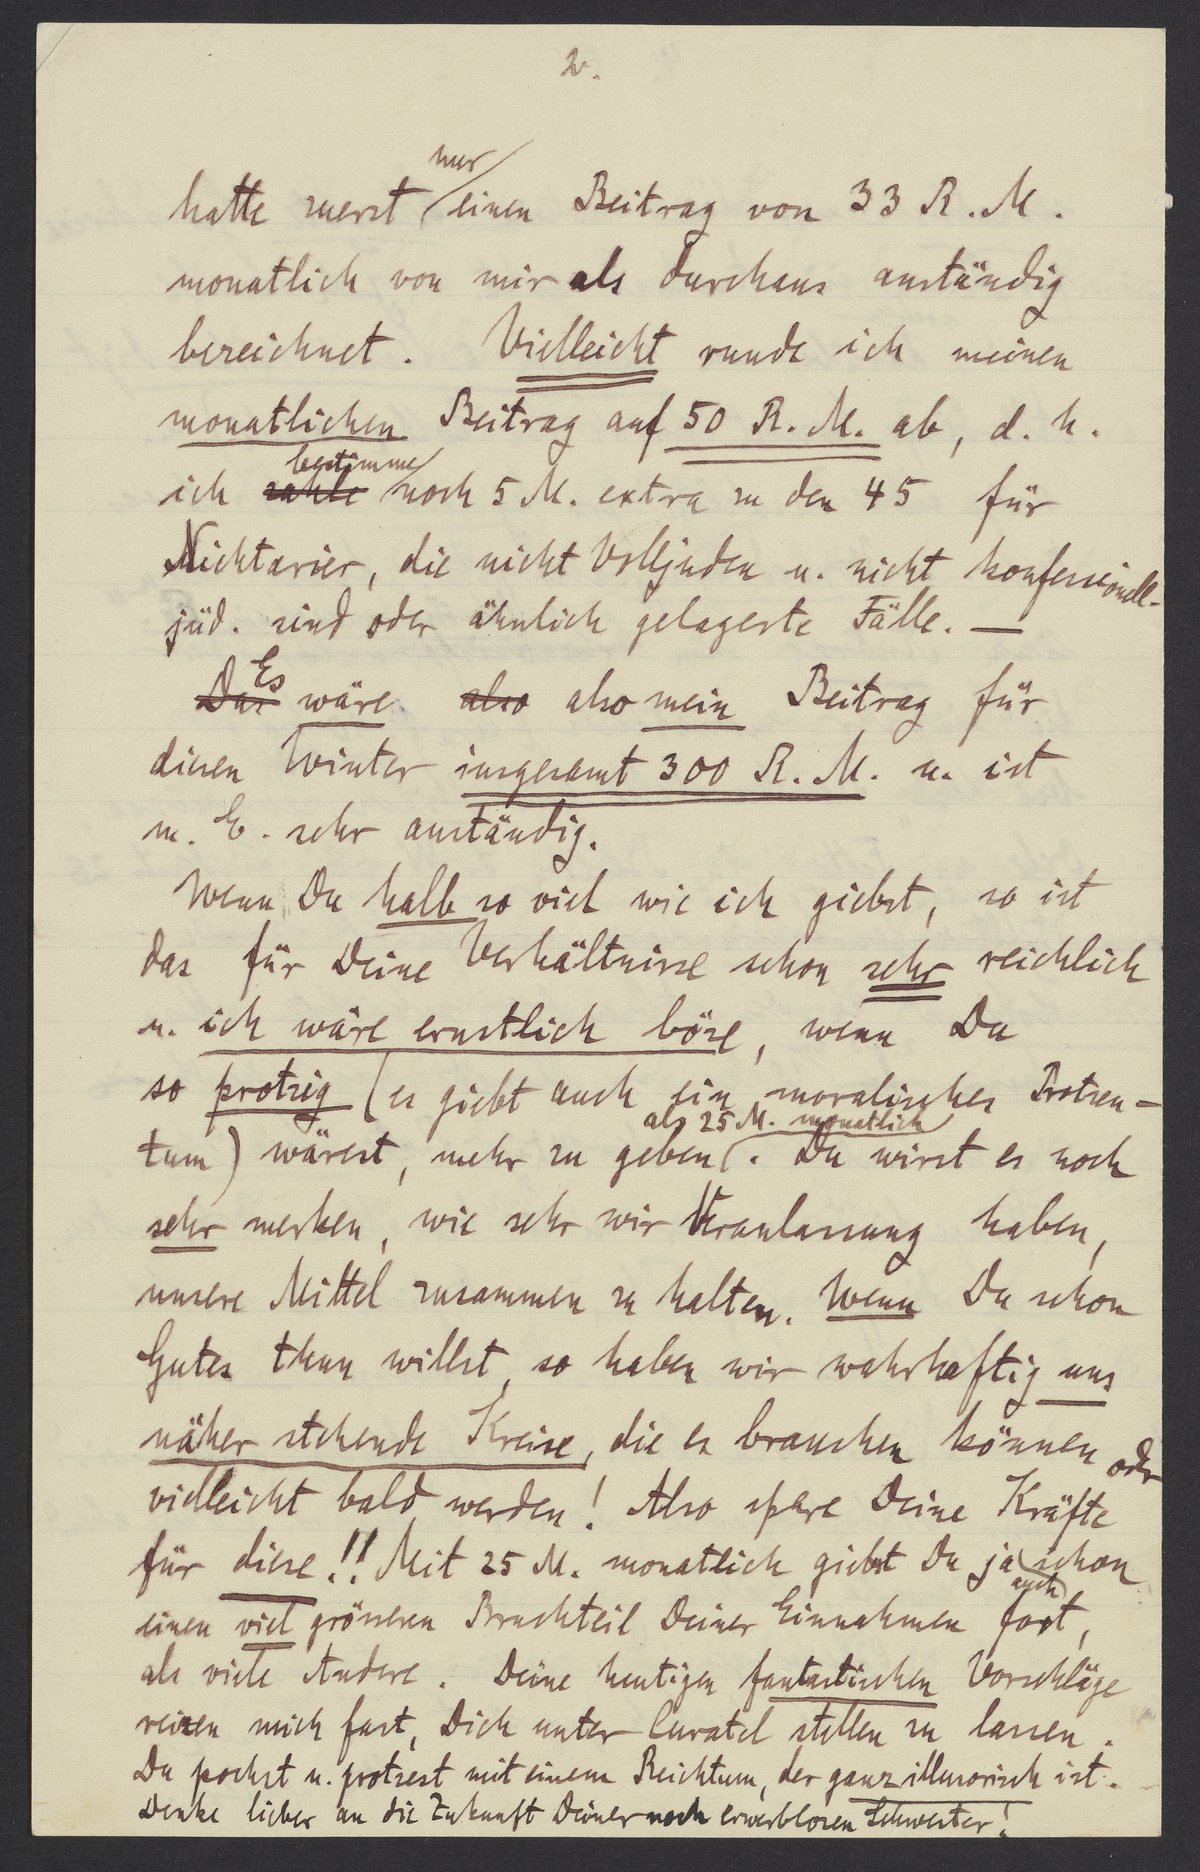 2.
hatte zuerst nur einen Beitrag von 33 R. M.
monatlich von mir als durchaus anständig
bezeichnet. Vielleicht runde ich meinen
monatlichen Beitrag auf 50 R. M. ab, d. h.
bestimme
ich zahle noch 5 M. extra zu den 45 für
Nichtarier, die nicht Volljuden u. nicht konfessionell-
jüd. sind oder ähnlich gelagerte Fälle. —
Es
Das wäre also also mein Beitrag für
diesen Winter insgesamt 300 R. M. u. ist
m. E. sehr anständig.
Wenn Du halb so viel wie ich giebst, so ist
das für Deine Verhältnisse schon sehr reichlich
u. ich wäre ernstlich böse, wenn Du
so protzig (es giebt auch ein moralisches Protzen-
als 25 M. monatlich
tum) wärest, mehr zu geben. Du wirst es noch
sehr merken, wie sehr wir Veranlassung haben,
unsere Mittel zusammen zu halten. Wenn Du schon
Gutes thun willst, so haben wir wahrhaftig uns
näher stehende Kreise, die es brauchen können oder
vielleicht bald werden! Also spare Deine Kräfte
für diese!! Mit 25 M. monatlich giebst Du ja schon
auch
einen viel grösseren Bruchteil Deiner Einnahmen fort,
als viele Andere. Deine heutigen fantastischen Vorschläge
reizen mich fast, Dich unter Curatel stellen zu lassen.
Du pochst u. protzest mit einem Reichtum, der ganz illusorisch ist.
Denke lieber an die Zukunft Deiner noch erwerblosen Schwester!